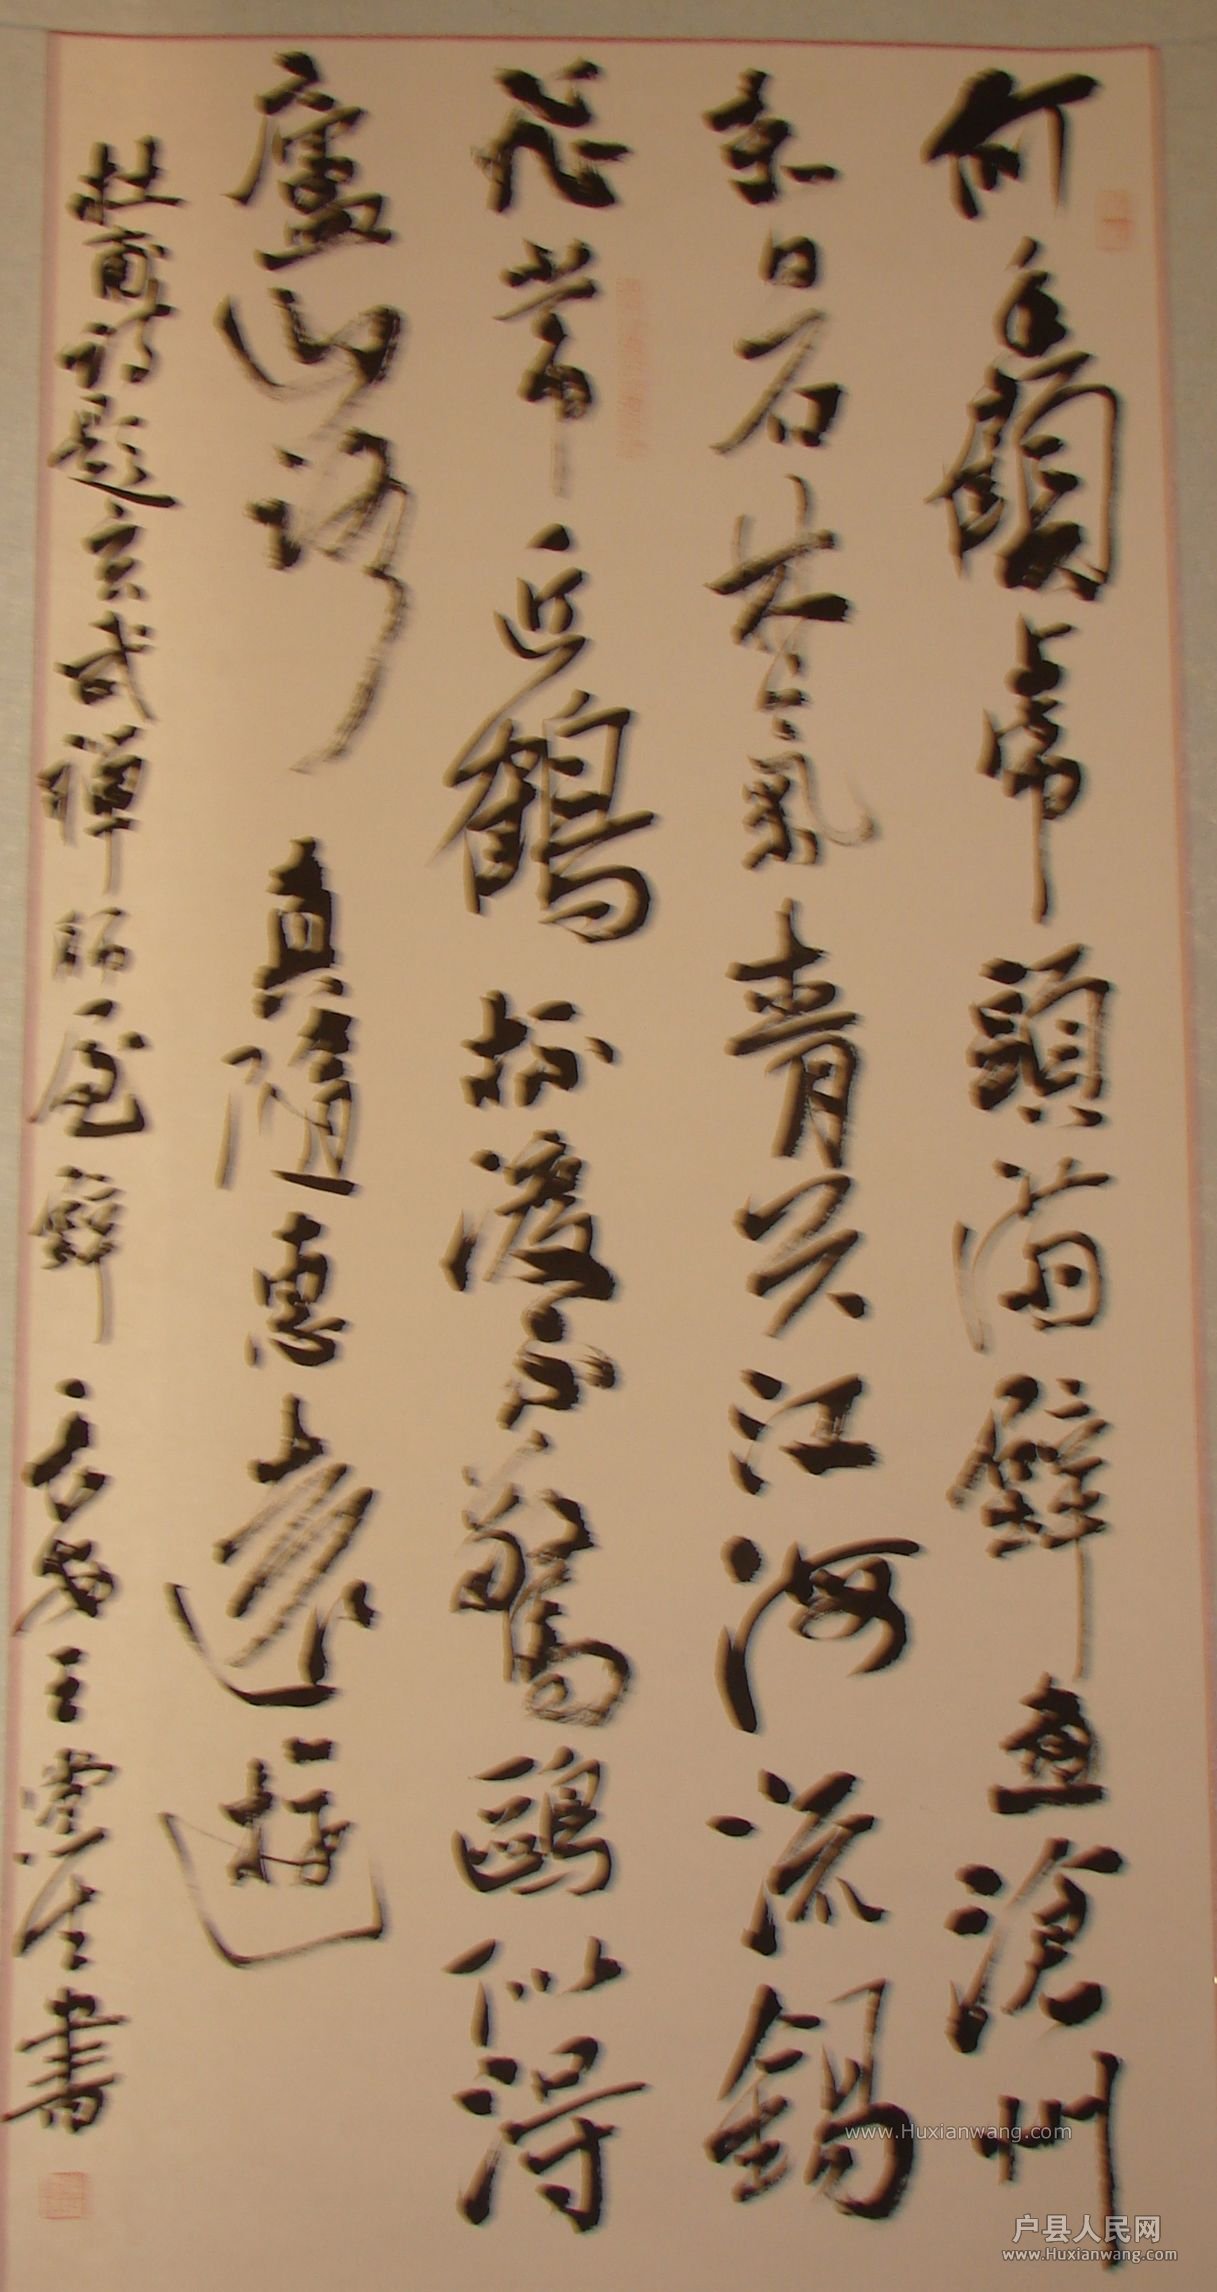 何年顧虎頭滿壁畫滄州
赤日石林氣青天江海流錫
飛常近鶴杯渡不驚鷗似得
廬山路真隨惠遠遊
杜甫詩題玄武禪師屋壁 王生書
www.Huxianwang.com
户县人民网
www.Huxianwang.com